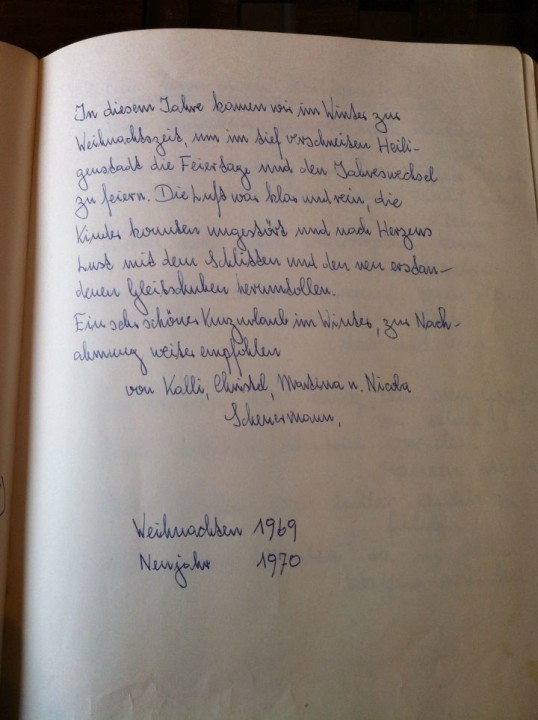 In diesem Jahre kamen wir im Winter zur
Weihnachtszeit, um im tief verschneiten Heili-
genstadt die Feiertage und den Jahreswechsel
zu feiern. Die Luft war klar und rein, die
Kinder konnten ungestört und nach Herzens
Lust mit dem Schlitten und den neu erstan-
denen Gleitschuhen herumtollen.
Ein sehr schöner Kurzurlaub im Winter, zur Nach-
ahmung weiter empfohlen
von Kalli, Christel, Martina u. Nicola
Scheuermann,
Weihnachten 1969
Neujahr 1970